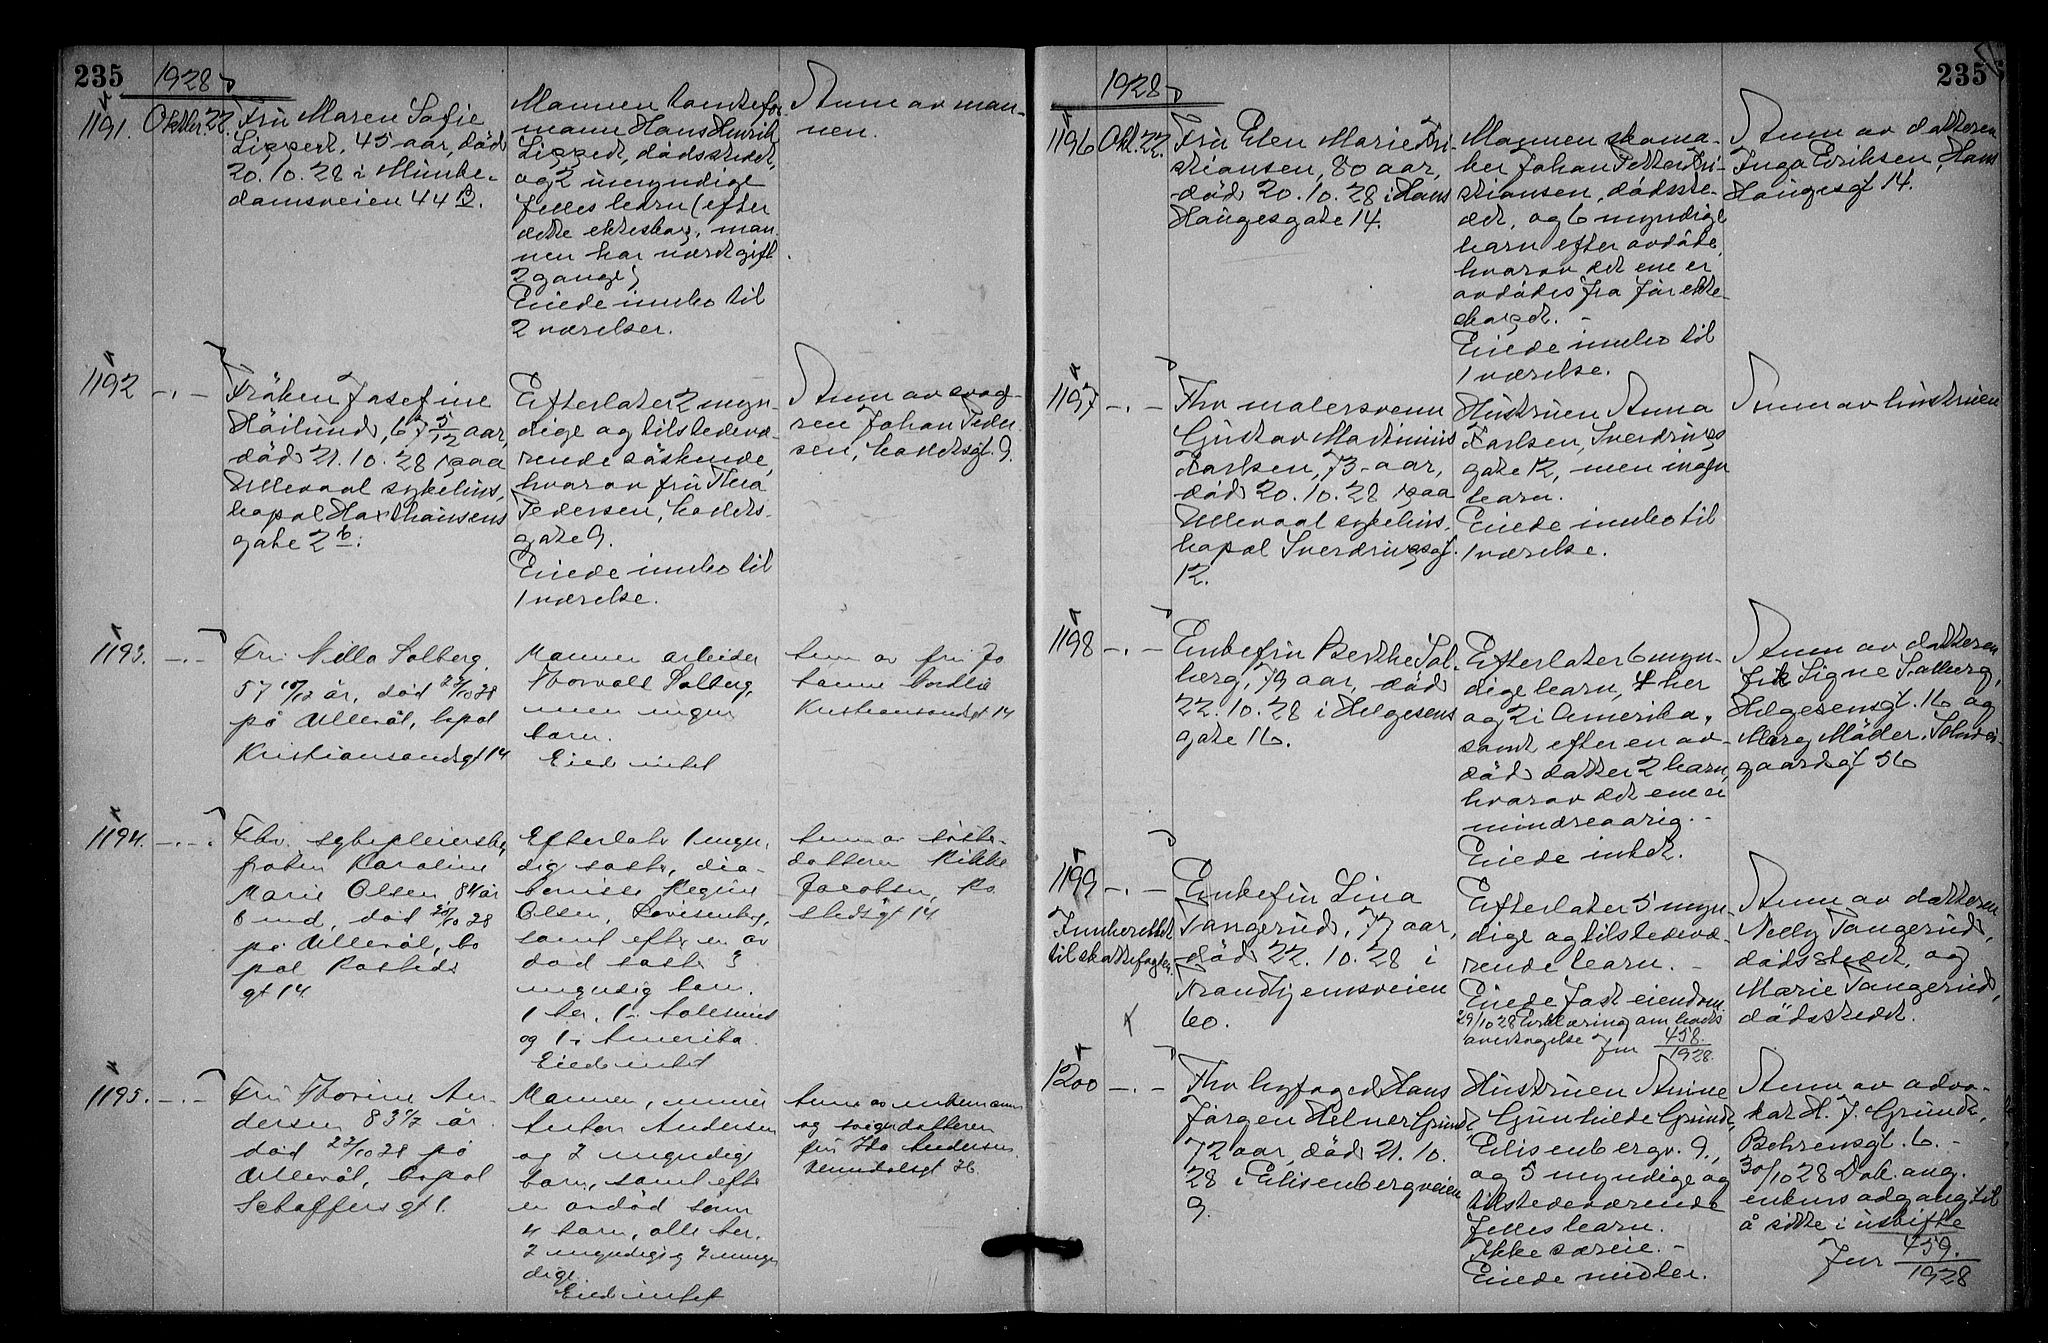 235
1928
1191.
Oktbr. 22.
Fru Maren Sofie
Lippert, 45 aar, død
20.10.28 i Munke-
damsveien 44 B.
Mannen
mann Hans Henrik
Lippert, dødsstedet,
og 2 umyndige
felles barn (efter
dette ekteskap, man-
nen har været gift
2 gange)
Eiede innbo til
2 værelser.
Anm av man-
nen.
1192
-.-
Frøken Josefine
Höilund, 67 5/12 aar,
död 21.10.28 paa
Ullevaal sykehus,
bopæl Haxthausens
gate 2 b.
Efterlater 2 myn-
dige og tilstedevæ-
rende söskende,
hvorav fru Thea
Pedersen,
gate 9.
Eiede innbo til
1 værelse.
Anm av svog-
ren Johan Peder-
sen, 9.
1193.
-.-
Fru Nilla Solberg
57 10/12 år, död 22/10 28
på Ullevål, bopæl
Kristiansandsgt 14
Mannen arbeider
Thorvald Solberg,
men ingen
barn.
Eied intet
Anm av fru Jo
hanne
Kristiansandsgt 14
1194.
-.-
Fhv. sykepleierske,
frøken Karoline
Marie Olsen, 84 år
6 md, død 20/10 28
på Ullevål, bo
pæl Rosteds
gt 14.
Efterlater 1 myn-
dig søster, dia-
konisse Regine
Olsen, Lovisenberg,
samt efter en av
død søster 3
myndige barn.
1 her, 1 i
og 1 i Amerika.
Eied intet
Anm av søster-
datteren Rikke
Jacobsen, Ro
stedsgt 14
1195.
-.-
Fru Thorine An-
dersen 83 1/2 år
død 22/10 28 på
Ullevål, bopæl
Schaffers gt 1.
Mannen, murer
Anton Andersen
og 2 myndige
barn, samt efter
en avdød sønn
4 barn, alle her.
2 myndige og 2 umyn
dige.
Eied intet
Anm av enkemannen
og svigerdatteren
fru Ida Andersen
26.
1928
235
1196
Okt. 22.
Fru Elen Marie Kri-
stiansen, 80 aar,
död 20.10.28 i Hans
Haugesgate 14.
Mannen skoma-
ker Johan Petter Kri-
stiansen, dödsste-
det, og 6 myndige
barn efter avdöde,
hvorav det ene er
avdödes fra för ekte-
skapet. -
Eiede innbo til
1 værelse.
Anm av datteren
Inga Eriksen, Hans
Haugesgt 14.
1197
-.-
Fhv malersvenn
Gustav Martinius
Karlsen, 73 aar,
död 20.10.28 paa
Ullevaal sykehus,
bopæl Sverdrupsgt.
12.
Hustruen Anna
Karlsen, Sverdrups
gate 12, men ingen
barn.
Eiede innbo til
1 værelse.
Anm av hustruen
1198
-.-
Enkefru Berthe Sol-
berg, 79 aar, död
22.10.28 i Helgesens
gate 16.
Efterlater 6 myn-
dige barn, 4 her
og 2 i Amerika,
samt efter en av-
död datter 2 barn,
hvorav det ene er
mindreaarig. -
Eiede intet.
Anm av datteren
frk Signe Solberg,
Helgesensgt. 16 og
Marg Möller,
gaardsgt 56
1199
-.-
Innberettet
til skattefogden.
Enkefru Lina
Tangerud, 77 aar,
död 22.10.28 i
Trondhjemsveien
60.
Efterlater 5 myn-
dige og tilstedevæ-
rende barn. -
Eiede fast eiendom
29/10 28 Erklæring om boets
overtagelse Jnr 458./1928
Anm av datteren
Nelly Tangerud,
dödsstedet, og
Marie Tangerud,
dödsstedet.
1200
-.-
Fhv byfoged Hans
Jörgen Helner Grundt
72 aar, död 21.10.
28 i Elisenbergveien
9.
Hustruen Anine
Gunhilde Grundt,
Elisenbergv. 9.,
og 5 myndige og
tilstedeværende
felles barn.
Ikke særeie. -
Eiede midler.
Anm av advo-
kat H. J. Grundt,
Behrensgt. 6. -
30/10 28 Dok. ang.
enkens adgang til
å sitte i uskifte
Jnr 459./1928